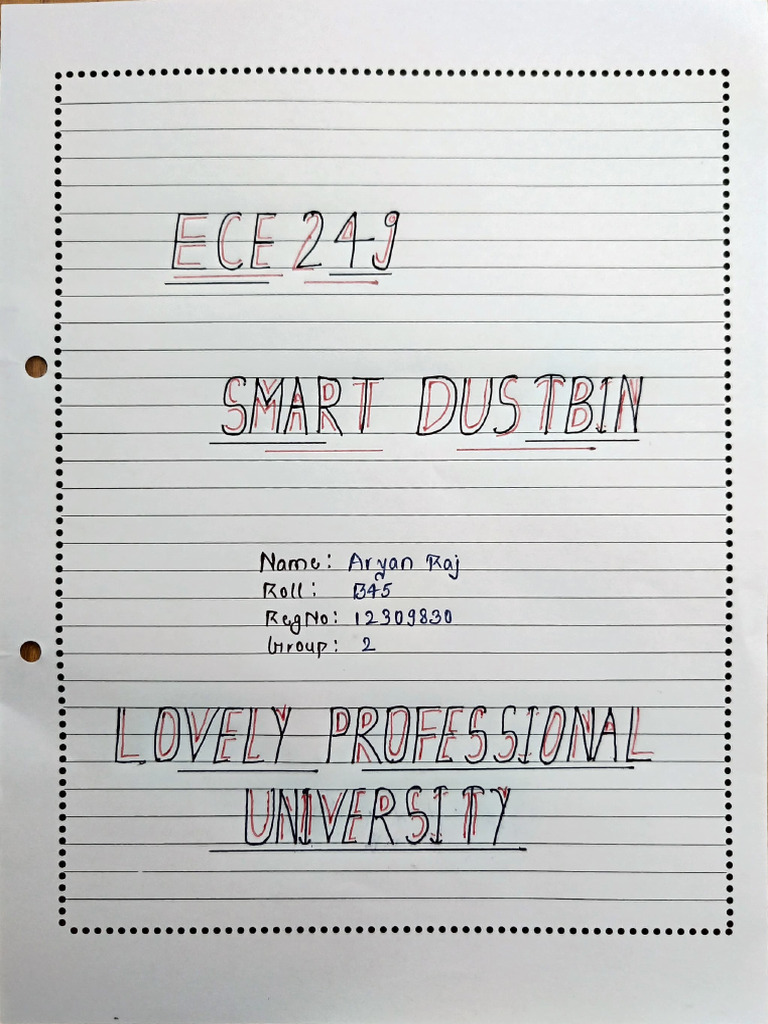 ECE 249
SMART DUSTBIN
Name: Aryan Raj
Roll: B45
RegNo: 12309830
Group: 2
LOVELY PROFESSIONAL
UNIVERSITY